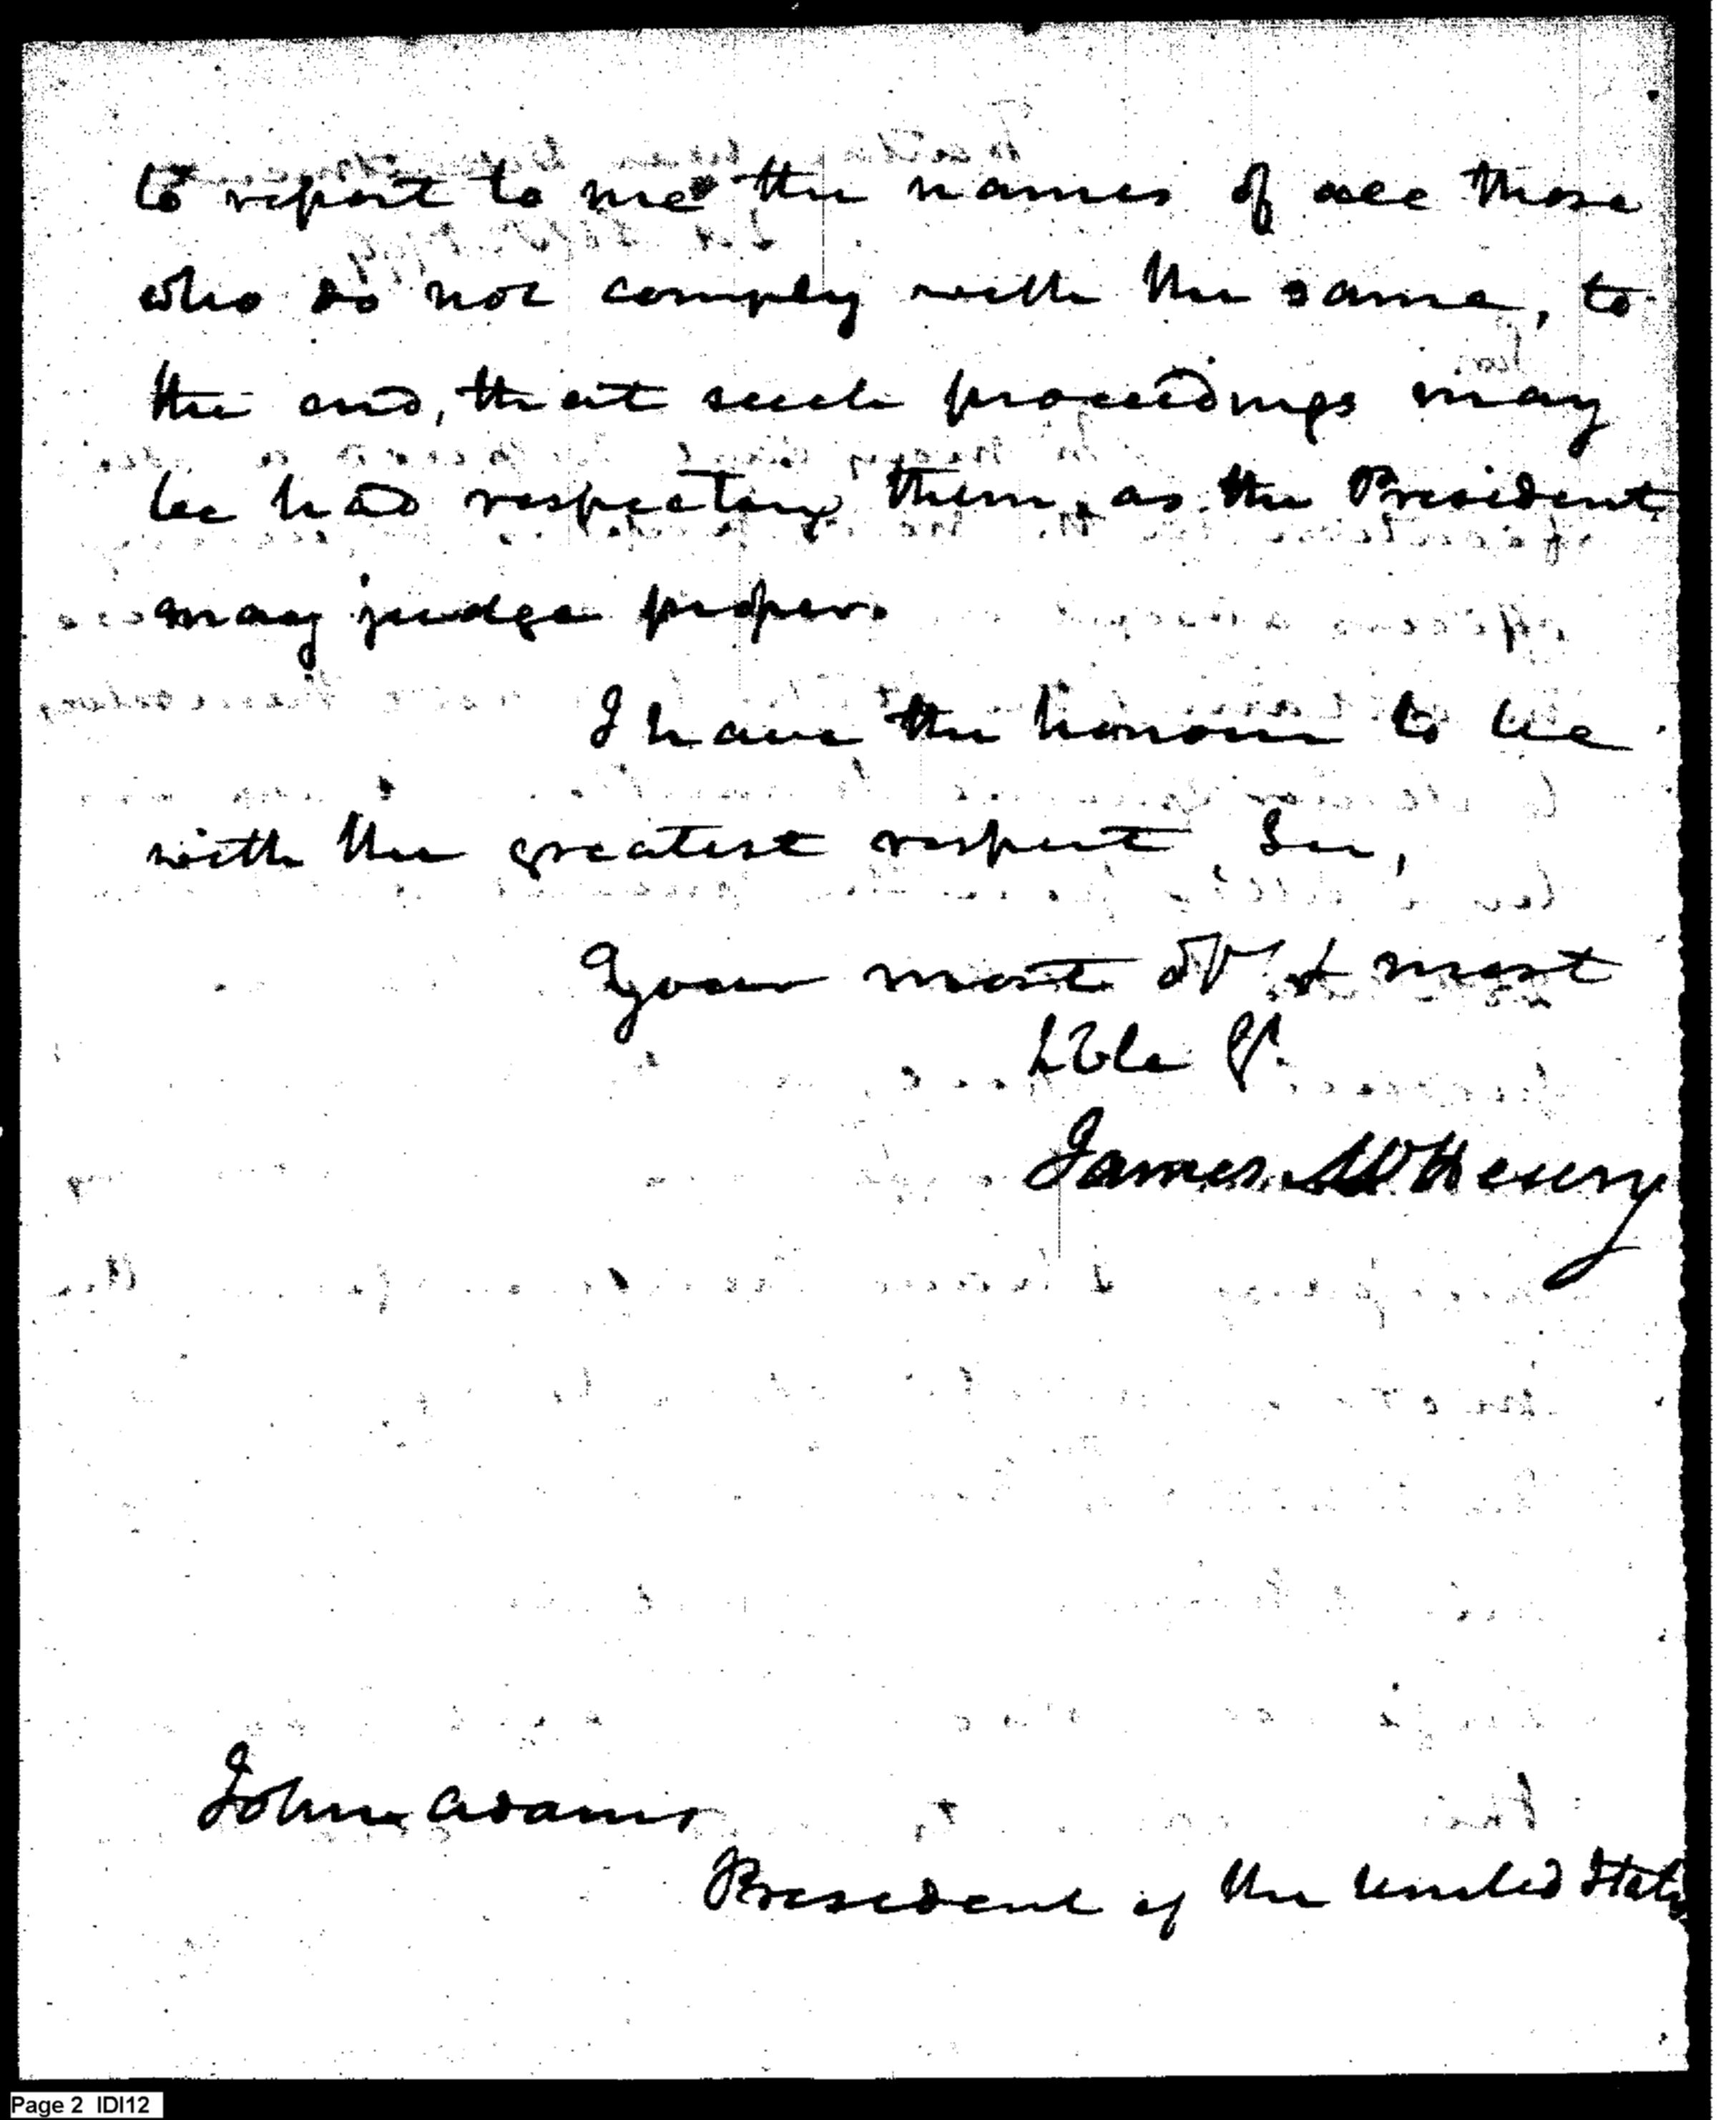 to report to me the names of all those
who do not comply with the same, to
the end, that such proceedings may
be had respecting them, as the President
may judge proper.
I have the honour to be
with the greatest respect, Sir,
Your most obt & most
hble St
James McHenry
John Adams
President of the United States
Page 2 IDI12